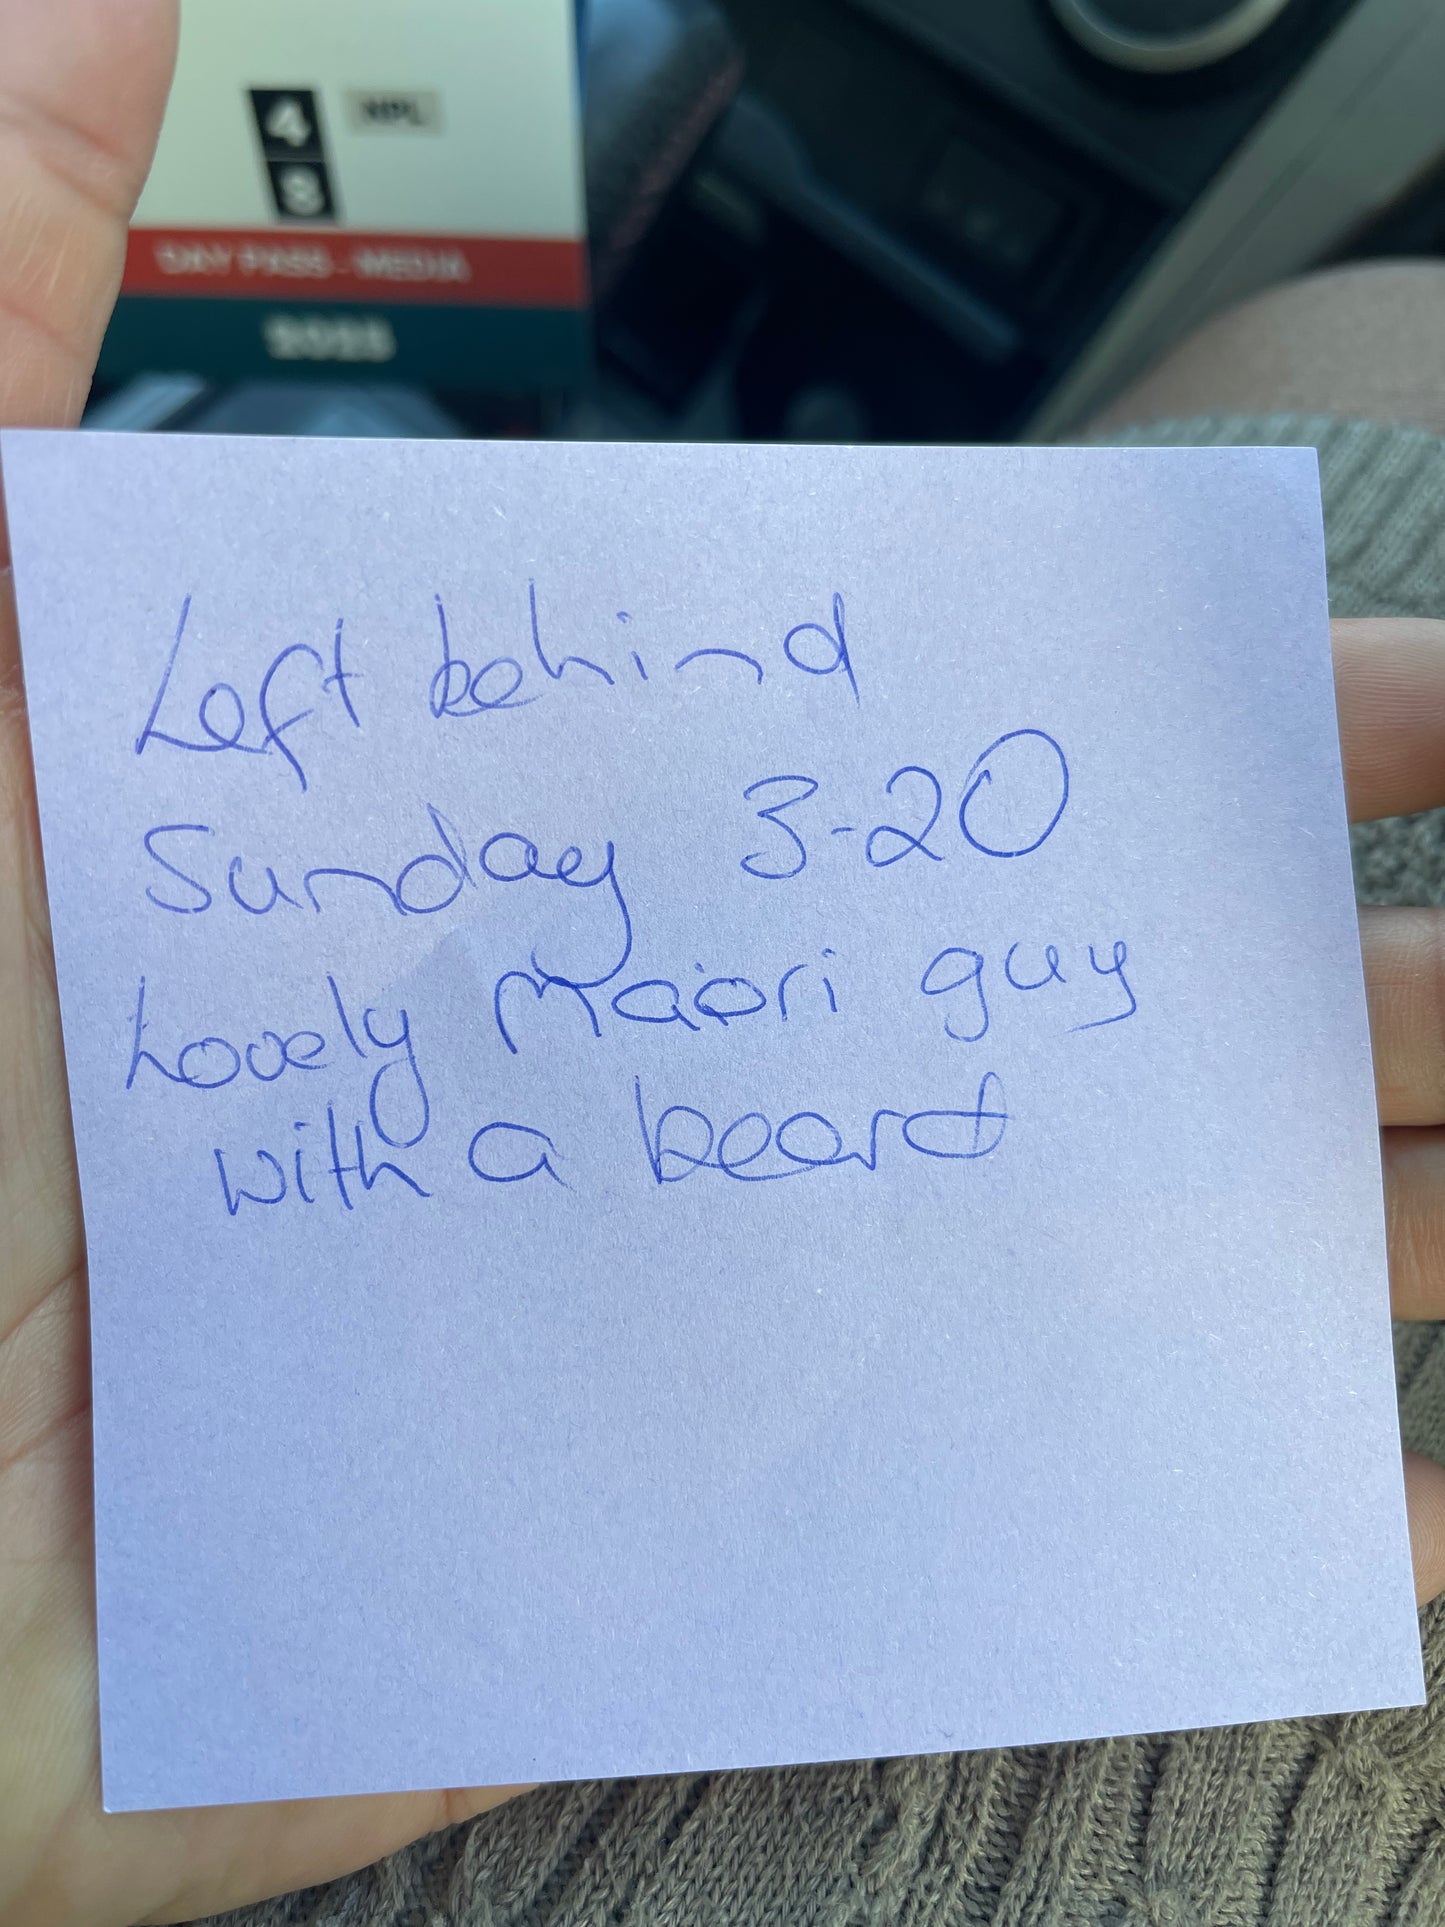 4
3
NPL
DAY PASS - MEDIA
2023
Left behind
Sunday 3-20
Lovely Maori guy
with a beard